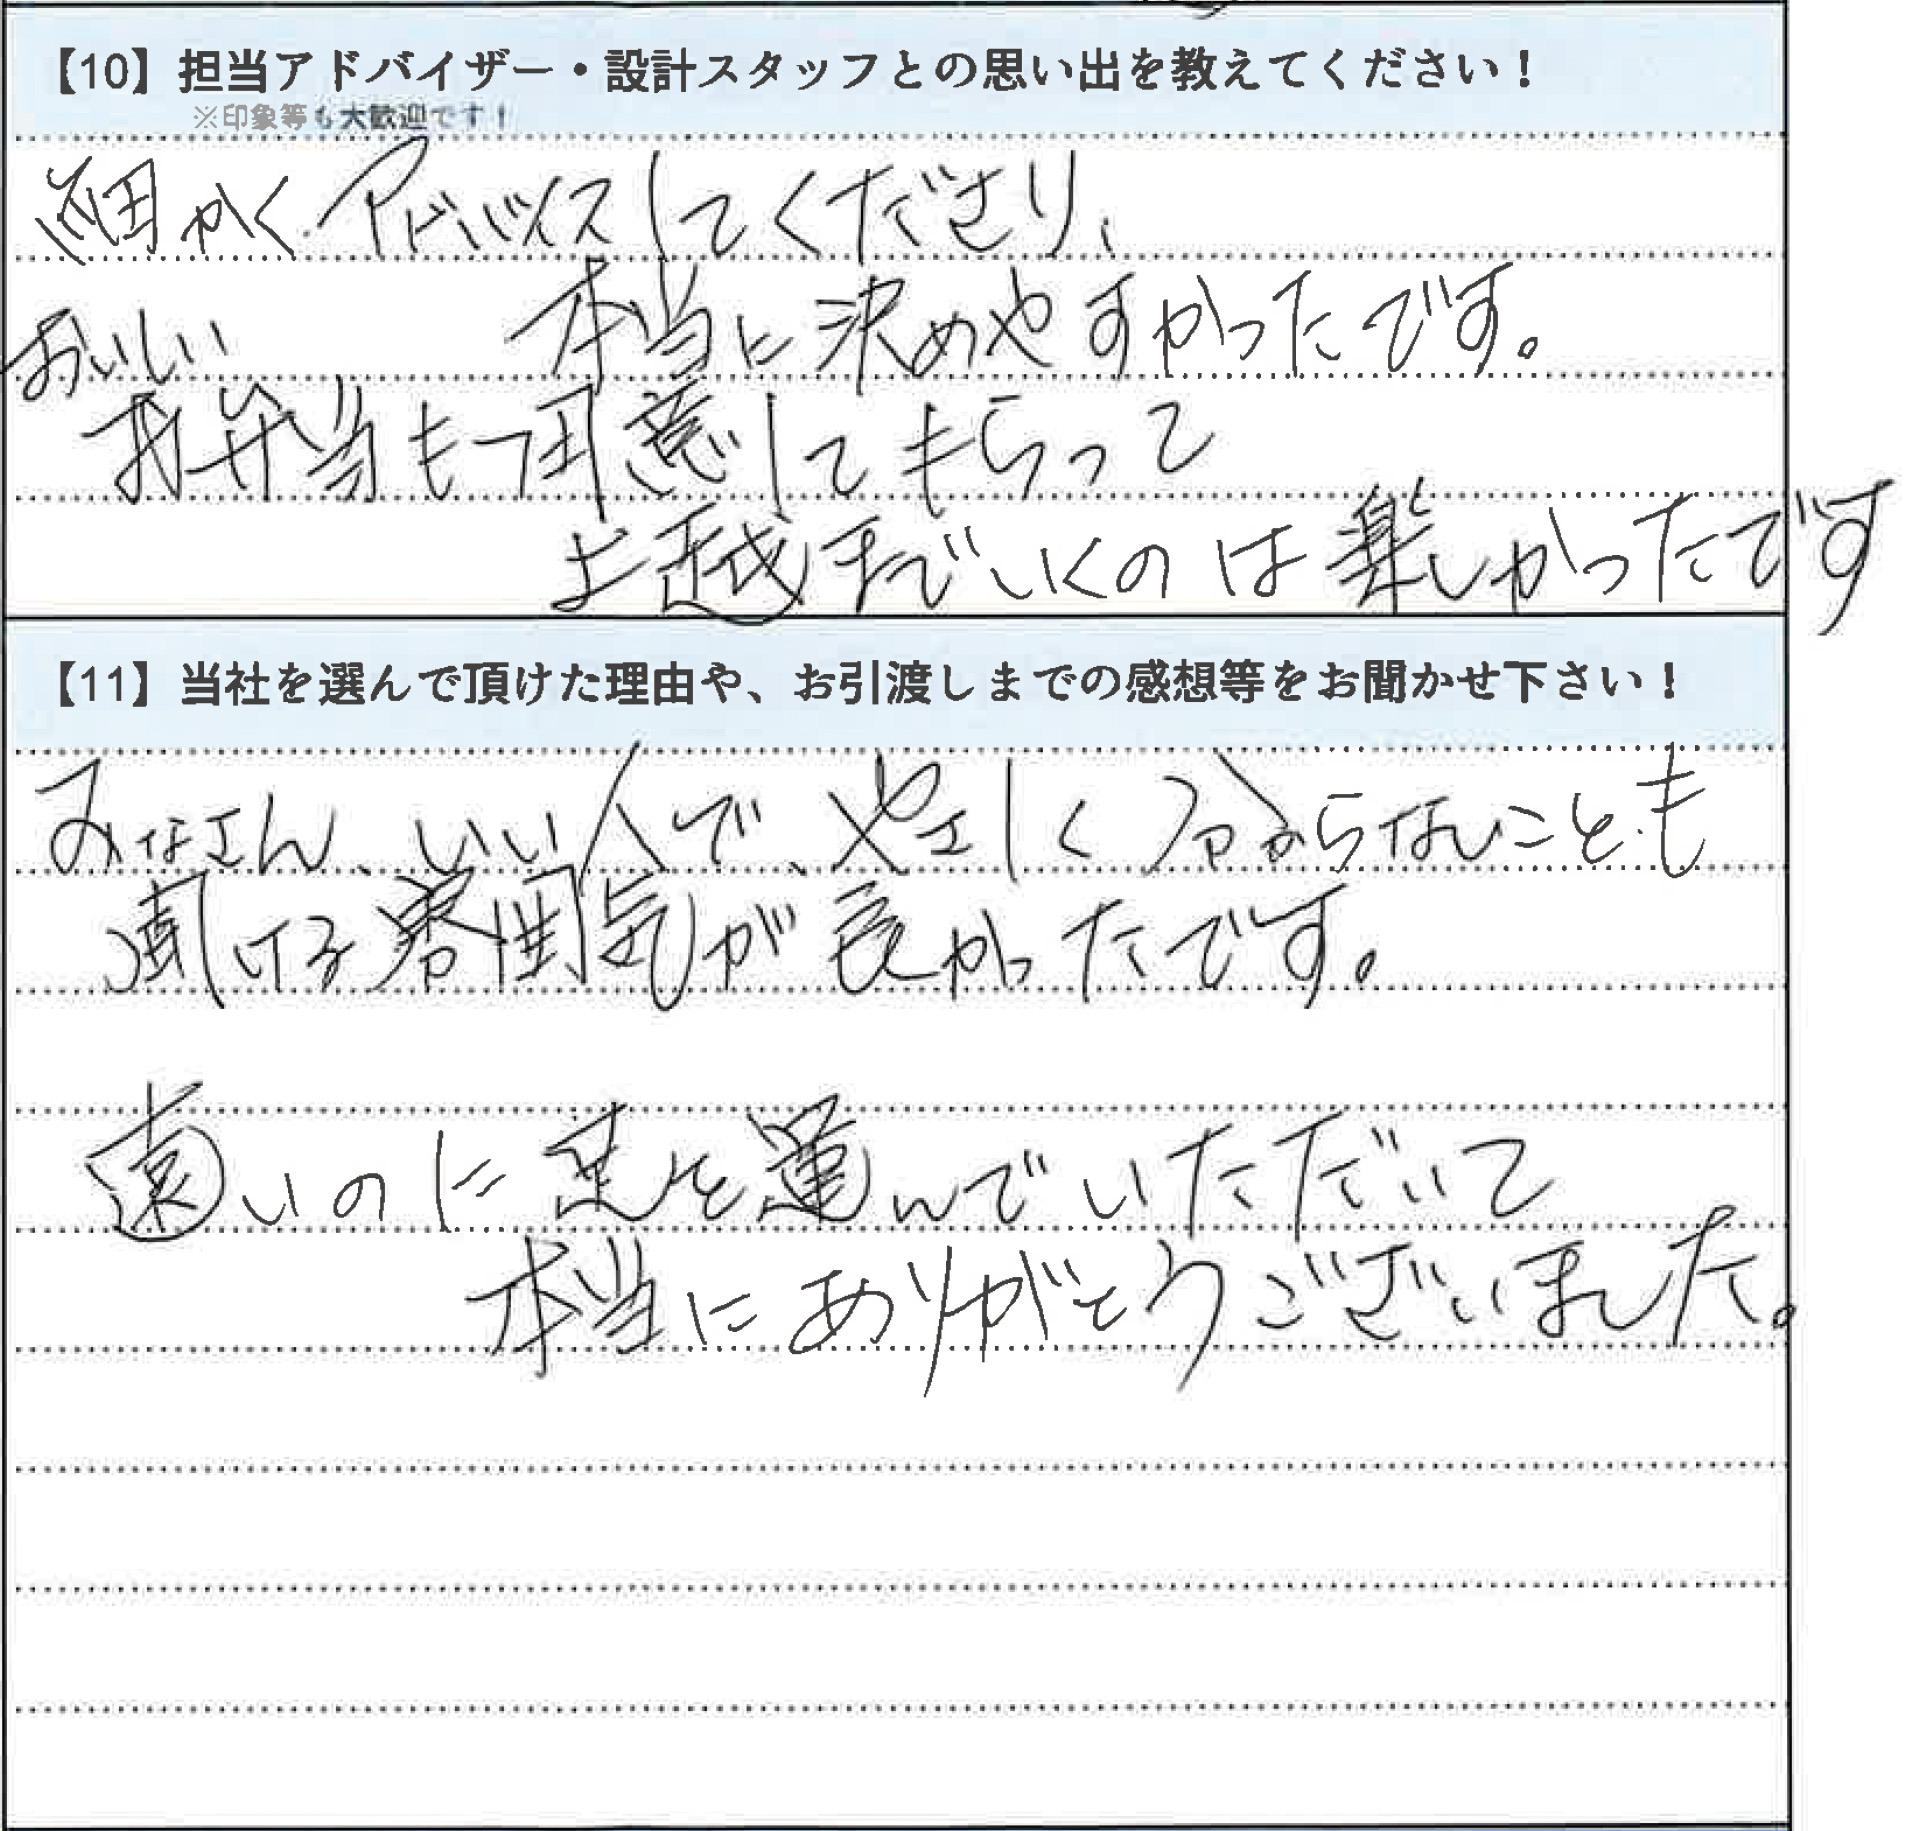 【10】担当アドバイザー・設計スタッフとの思い出を教えてください！
※印象等も大歓迎です！
細かくアドバイスしてくださり、
本当に決めやすかったです。
おいしい
お弁当も用意してもらって
上越までいくのは楽しかったです
【11】当社を選んで頂けた理由や、お引渡しまでの感想等をお聞かせ下さい！
みなさん、いい人で、やさしく分からないことも
聞ける雰囲気が良かったです。
遠いのに足を運んでいただいて
本当にありがとうございました。